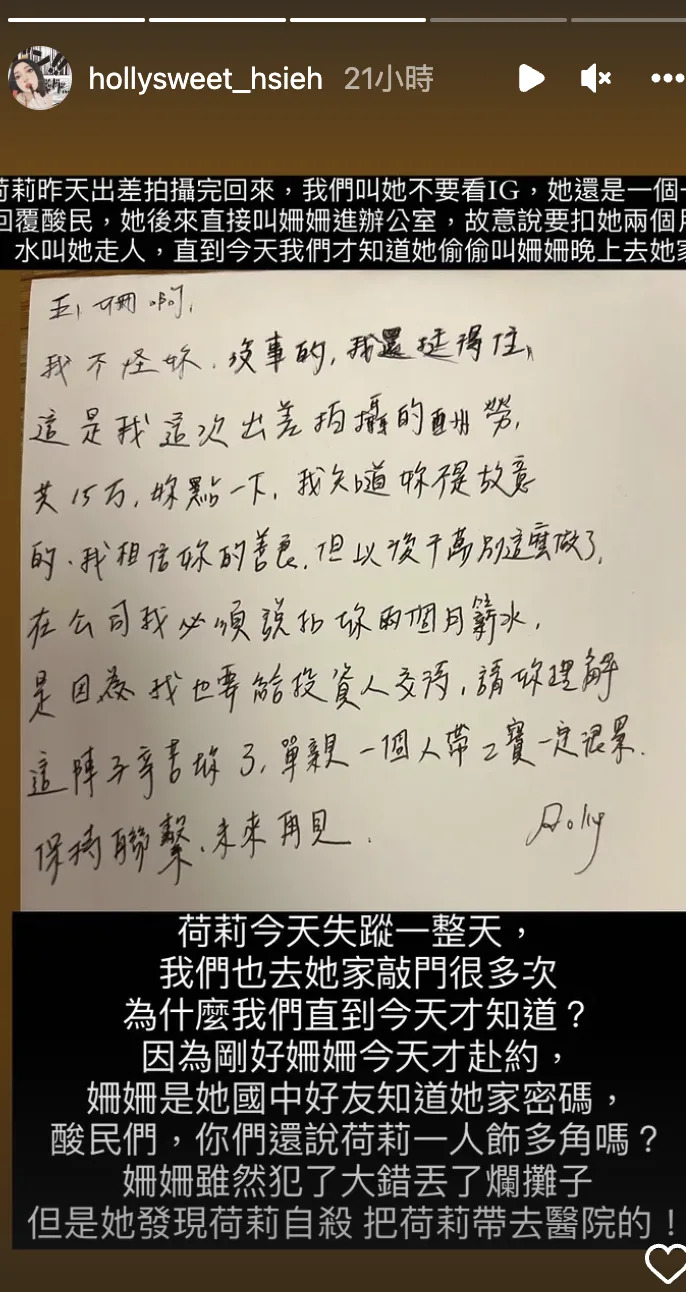 hollysweet_hsieh 21小時
荷莉昨天出差拍攝完回來，我們叫她不要看IG，她還是一個一
回覆酸民，她後來直接叫姍姍進辦公室，故意說要扣她兩個月
水叫她走人，直到今天我們才知道她偷偷叫姍姍晚上去她家
姍啊，
我不怪妳，沒事的，我還挺得住，
這是我這次出差拍攝的酬勞，
共15万，妳點一下，我知道妳不是故意
的，我相信妳的善良，但以後千萬別這麼做了，
在公司我必須說扣妳兩個月薪水，
是因為我也要給投資人交待，請妳理解
這陣子辛苦妳了，單親一個人帶2寶一定很累.
保持聯繫，未來再見. Holly
荷莉今天失蹤一整天，
我們也去她家敲門很多次
為什麼我們直到今天才知道？
因為剛好姍姍今天才赴約，
姍姍是她國中好友知道她家密碼，
酸民們，你們還說荷莉一人飾多角嗎？
姍姍雖然犯了大錯丟了爛攤子
但是她發現荷莉自殺 把荷莉帶去醫院的！